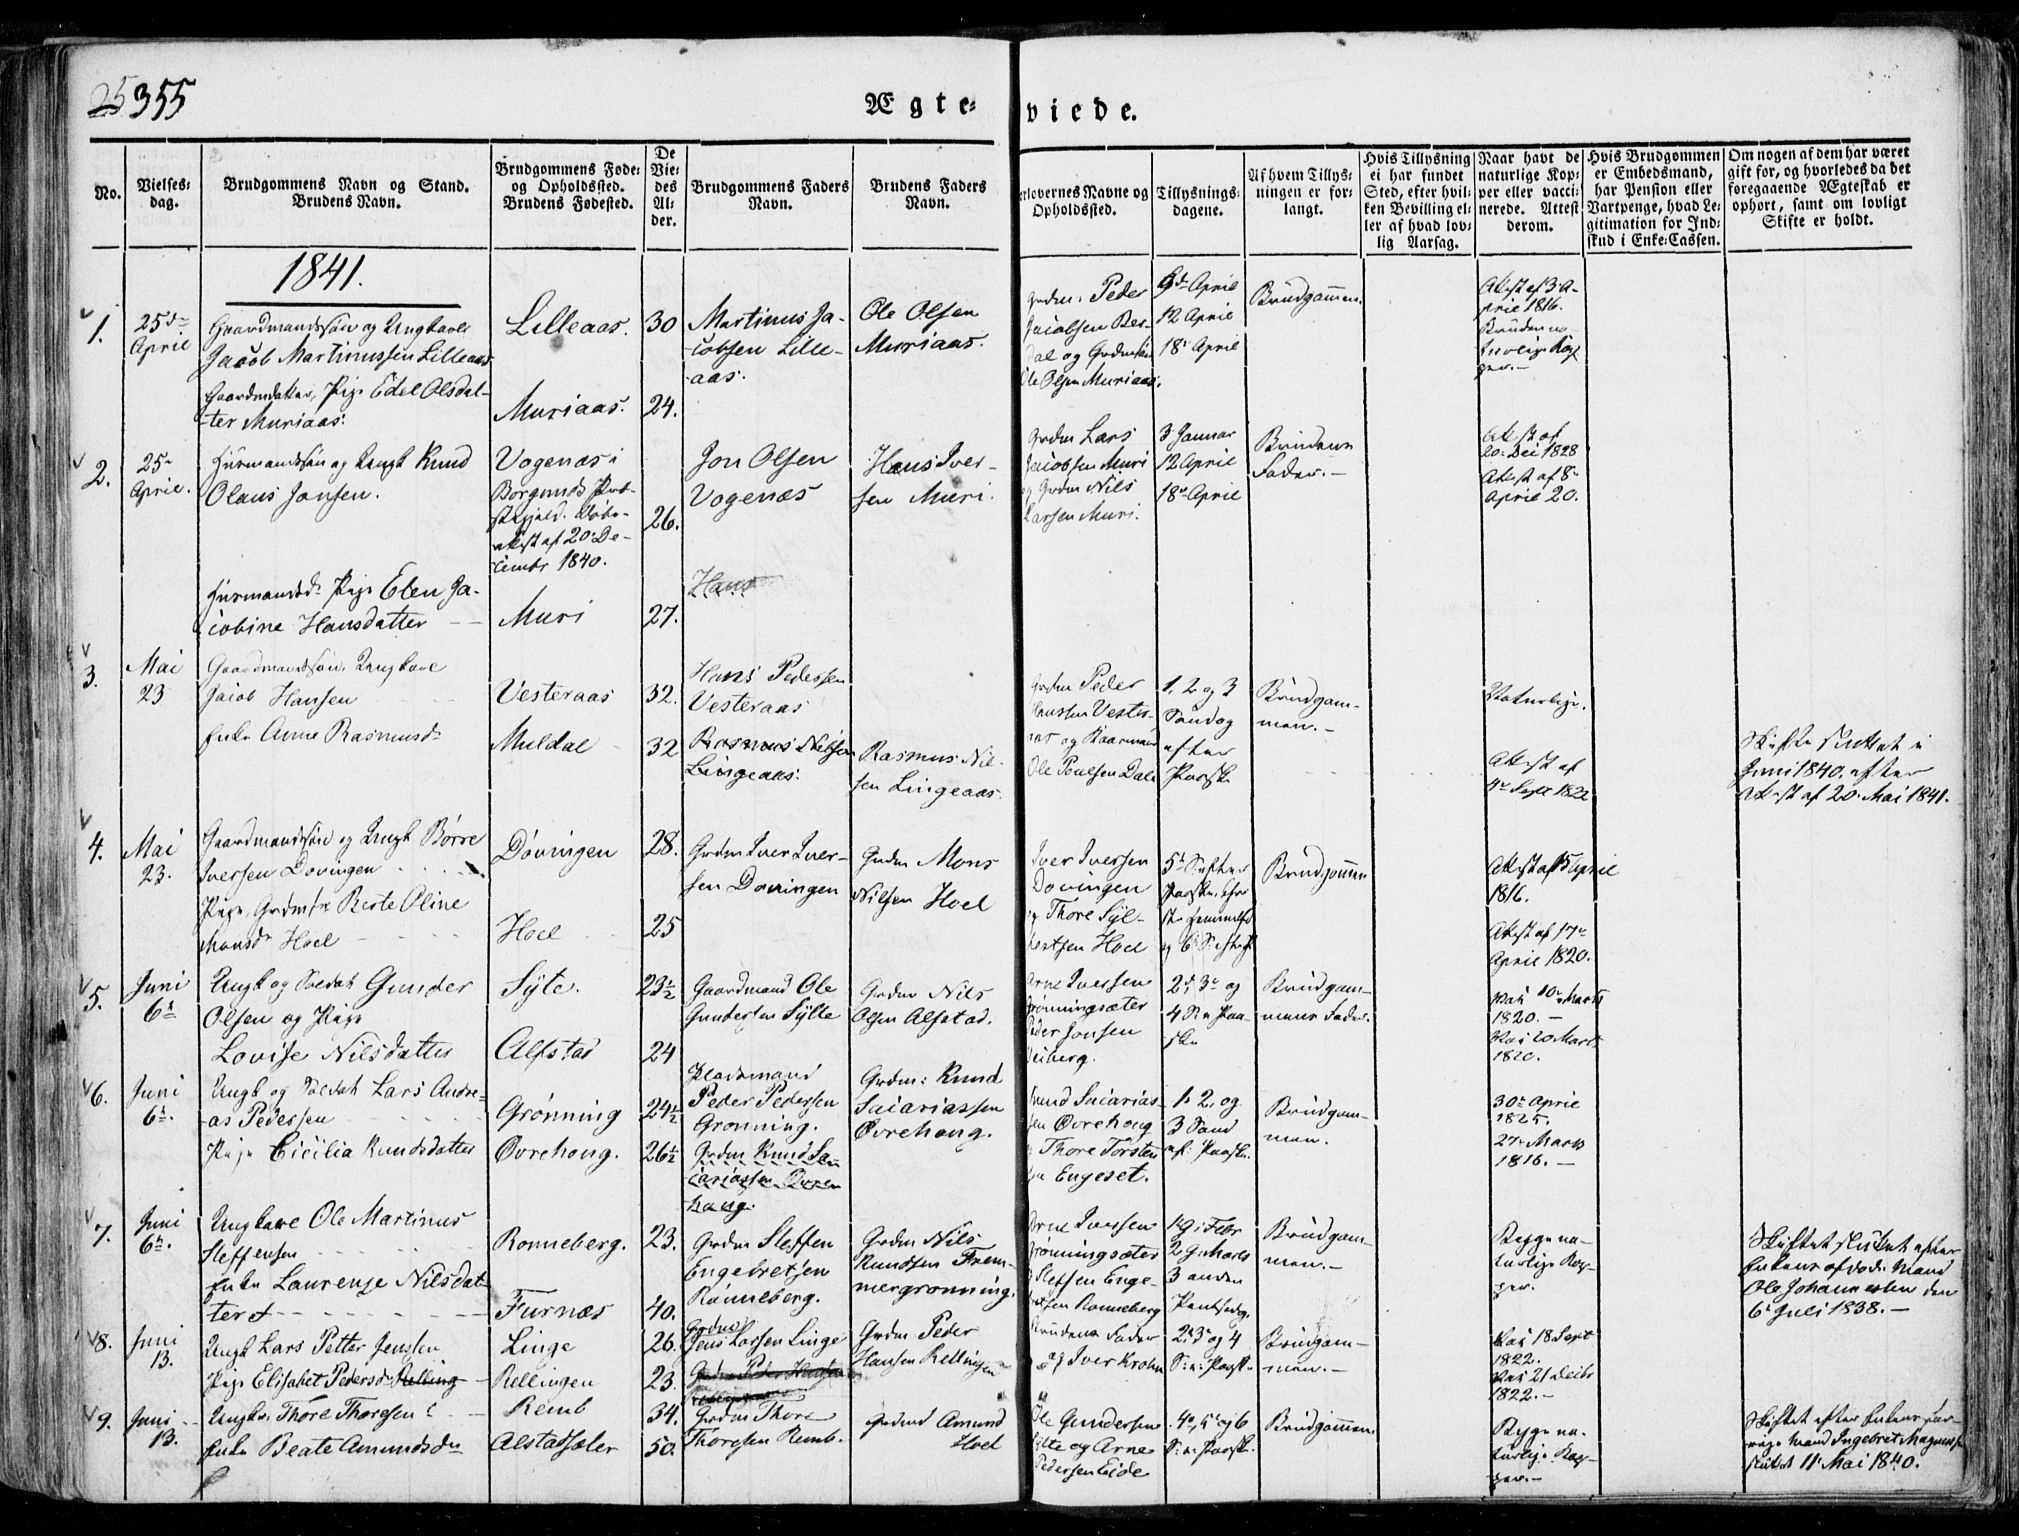 25 355
Ægte-
viede.
No.
Vielses-
dag.
Brudgommens Navn og Stand.
Brudens Navn.
Brudgommens Føde-
og Opholdssted.
Brudens Fødested.
De
Vie-
des
Al-
der.
Brudgommens Faders
Navn.
Brudens Faders
Navn.
erlovernes Navne og
Opholdssted.
Tillysnings-
dagene.
Af hvem Tillys-
ningen er for-
langt.
Hvis Tillysning
ei har fundet
Sted, efter hvil-
ken Bevilling el-
ler af hvad lov-
lig Aarsag.
Naar havt de
naturlige Kop-
per eller vacci-
nerede. Attest
derom.
Hvis Brudgommen
er Embedsmand,
har Pension eller
Vartpenge, hvad Le-
gitimation for Ind-
skud i Enke-Cassen.
Om nogen af dem har været
gift før, og hvorledes da det
foregaaende Ægteskab er
ophørt, samt om lovligt
Skifte er holdt.
1841.
1.
25de
April
Gaardmandssøn og Ungkarl
Jacob Martinussen Lilleaas
Gaardmdatter, Pige Edel Olsdat-
ter Muriaas.
Lilleaas.
Muriaas.
30
24.
Martinus Ja-
cobsen Lille-
aas.
Ole Olsen
Muriaas.
Grdm. Peder
Jacobsen Ber-
dal og Grdm
Ole Olsen Muriaas.
9de April
12 April
18 April
Brudgommen.
Attest af 3 A-
pril 1816.
Bruden na-
turlige Kop-
per.
2.
25
April.
Huusmandssøn og Ungk Knud
Olaus Jonsen.
Huusmandsd. Pige Elen Ja-
cobine Hansdatter
Vogenæs i
Borgunds Præ-
stegjeld. Døbe-
attest af 20 De-
cembr 1840.
Muri
26.
27.
Jon Olsen
Vogenæs
Hans
Hans Iver-
sen Muri.
Grdm Lars
Jacobsen Muri
og Grdm Nils
Larsen Muri.
3 Januar
12 April
18 April
Brudens
Fader.
Attest af
20 Dei 1828
Attest af 8
April 20.
3.
Mai
23
Gaardmandssøn. Ungkarl
Jacob Hansen
Enke Anne Rasmusd.
Vesteraas
Muldal
32.
32
Hans Pedersen
Vesteraas
Rasmus Nilsen
Lingeaas.
Rasmus Nil-
sen Lingeaas.
Grdm Peder
Hanssen Vester-
aas og Kaarmand
Ole Poulsen Dale
1, 2 og 3
Søndag
efter
Paaske
Brudgom-
men.
Naturlige.
Attest af
4 Sept 1822
Skifte sluttet i
Juni 1840. efter
Attest af 20 Mai 1841.
4.
Mai
23.
Gaardmandssøn og Ungk Børre
Iversen Dovingen
Pige, Grdm Berte Oline
Monsd. Hoel
Døvingen
Hoel
28.
25
Grdm Iver Iver-
sen Dovingen
Grdm Mons
Nilsen Hoel
Iver Iversen
Dovingen
og Thore Syl-
festsen Hoel
5 S. efter
Paaske
og 6
Brudgommen
Attest af 15 April
1816.
Attest af 17
April 1820.
5.
Juni
6
Ungk og Soldat Gunder
Olsen og Pige
Lovise Nilsdatter
Sylte.
Alfstad
23½
24
Gaardmand Ole
Gundersen Sylte
Grdm Nils
Olsen Alfstad.
Arne Iversen
Grønningsæter
Peder Jonsen
2, 3 og
4 S. e Paa-
ske
Brudgom-
mens Fader.
Vac 10 Marts
1820.
Vac 20 Marts
1820.
6.
Juni
6.
Ungk og Soldat Lars Andre-
as Pedersen
Pige Cicilia Knudsdatter
Grønning
Øvrehoug.
24½
26½
Pladsmand
Peder Pedersen
Grønning.
Grdm Knud Sa-
cariassen Øvre
houg.
Grdm: Knud
Saiariassen
Øvrehoug.
Knud Saiarias-
sen Øvrehoug
Thore Torsten
sen Engeset.
1. 2. og
3 Sønd
af: Paaske.
Brudgom-
men.
30 April
1825.
27 Marts
1816.
7.
Juni
6.
Ungkarl Ole Martinus
Steffensen
Enke Laurense Nilsdat-
ter
Ronneberg.
Furnæs
23.
40.
Grdm Steffen
Engebretsen
Rønneberg.
Grdm Nils
Knudsen Frem-
mergrønning.
Arne Iversen
Grønningsæter
Steffen Enge-
bretsen Ronneberg
1 G i Febr
2 G. Marts
3 anden
Pintsedag.
Brudgom-
men.
Begge na-
turlige Kop-
per.
Skiftet sluttet efter
Enkens afdøde Mand
Ole Johannesen den
6 Juli 1838.
8.
Juni
13.
Ungk Lars Petter Jensen
Pige Elisabet Pedersd. Relling
Linge
Rellingen
26.
23.
Grdm
Jens Larsen Linge
Grdm Peder
Hansen Rellingen
Brudens Fader
og Iver Krohn
2, 3 og 4
S. e. Paask.
Brudgom-
men.
Vac 18 Sept
1822.
Vac 21 Decbr
1822.
9.
Juni
13.
Ungk. Thore Thoresen
Enke Beate Amundsd.
Remb
Alstadsæter
34.
50.
Grdm Thore
Thoresen Remb.
Grdm Amund
Hoel
Ole Gundersen
Sylte og Arne
Pedersen Eide
4, 5 og 6
S. e. Paask.
Brudgommen.
Begge na-
turlige Kop-
per.
Skiftet efter Enkens for-
rige Mand Ingebret Magnussen
sluttet 11 Mai 1840.